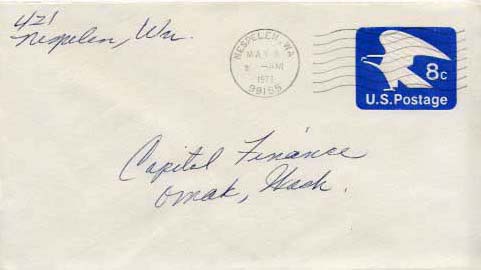 421
Nespelem, Wn.
NESPELEM, WA
MAY
AM
99155
8c
U.S. Postage
Capital Finance
Omak, Wash.